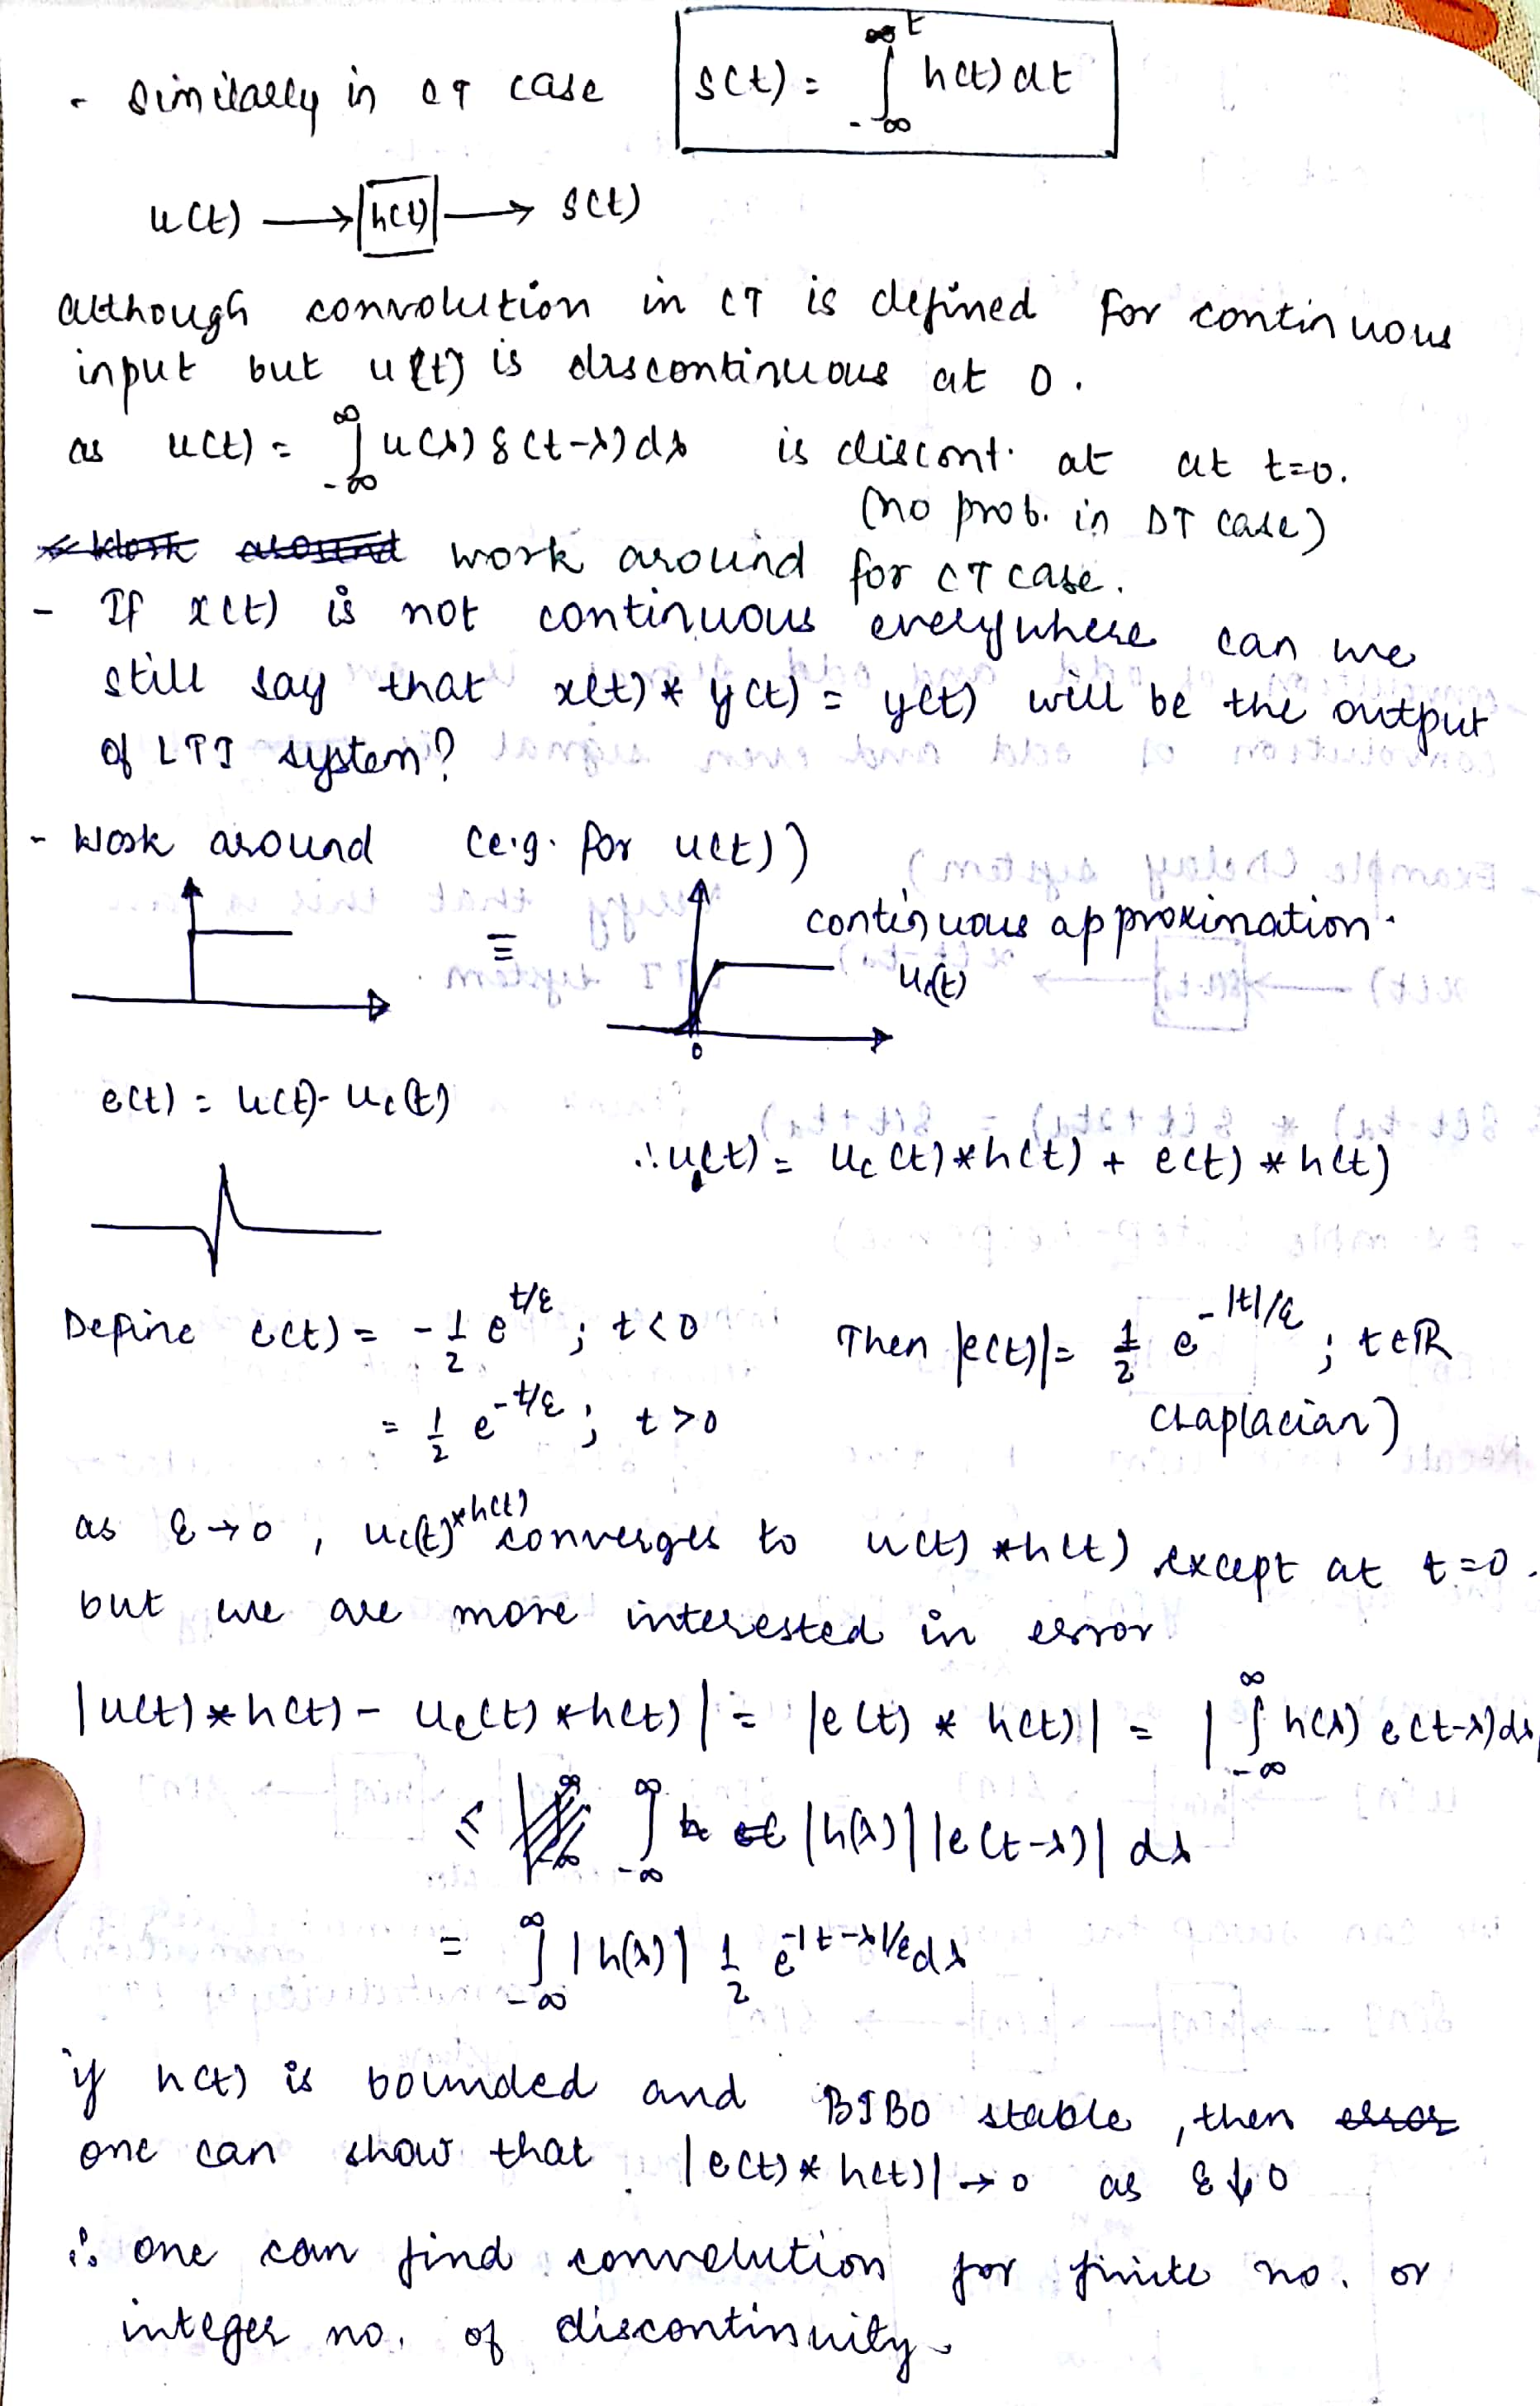 - similarly in CT case s(t) = ∫_{-∞}^{t} h(t) dt
u(t) → h(t) → s(t)
although convolution in CT is defined for continuous
input but u(t) is discontinuous at 0.
as u(t) = ∫_{-∞}^{∞} u(λ) δ(t-λ) dλ is discont. at at t=0.
(no prob. in DT case)
work around for CT case.
- If x(t) is not continuous everywhere can we
still say that x(t) * y(t) = y(t) will be the output
of LTI system?
- Work around (e.g. for u(t))
≡ continuous approximation.
u_c(t)
0
e(t) = u(t) - u_c(t)
∴ u(t) = u_c(t) * h(t) + e(t) * h(t)
Define e(t) = -1/2 e^{t/ε} ; t<0 Then |e(t)| = 1/2 e^{-|t|/ε} ; t∈ℝ
= 1/2 e^{-t/ε} ; t>0 (Laplacian)
as ε→0, u_c(t) * h(t) converges to u(t) * h(t) except at t=0.
but we are more interested in error
|u(t) * h(t) - u_c(t) * h(t)| = |e(t) * h(t)| = |∫_{-∞}^{∞} h(λ) e(t-λ) dλ|
≤ ∫_{-∞}^{∞} |h(λ)| |e(t-λ)| dλ
= ∫_{-∞}^{∞} |h(λ)| 1/2 e^{-|t-λ|/ε} dλ
if h(t) is bounded and BIBO stable, then
one can show that |e(t) * h(t)| → 0 as ε↓0
∴ one can find convolution for finite no. or
integer no. of discontinuity.